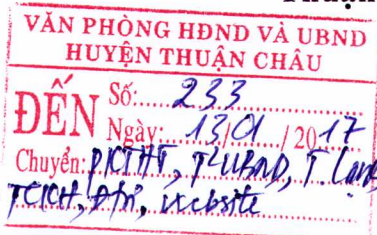 VĂN PHÒNG HĐND VÀ UBND
HUYỆN THUẬN CHÂU
ĐẾN
Số: 233
Ngày: 13/01 / 2017
Chuyển: PKTHT, TUBND,
TCKH, website